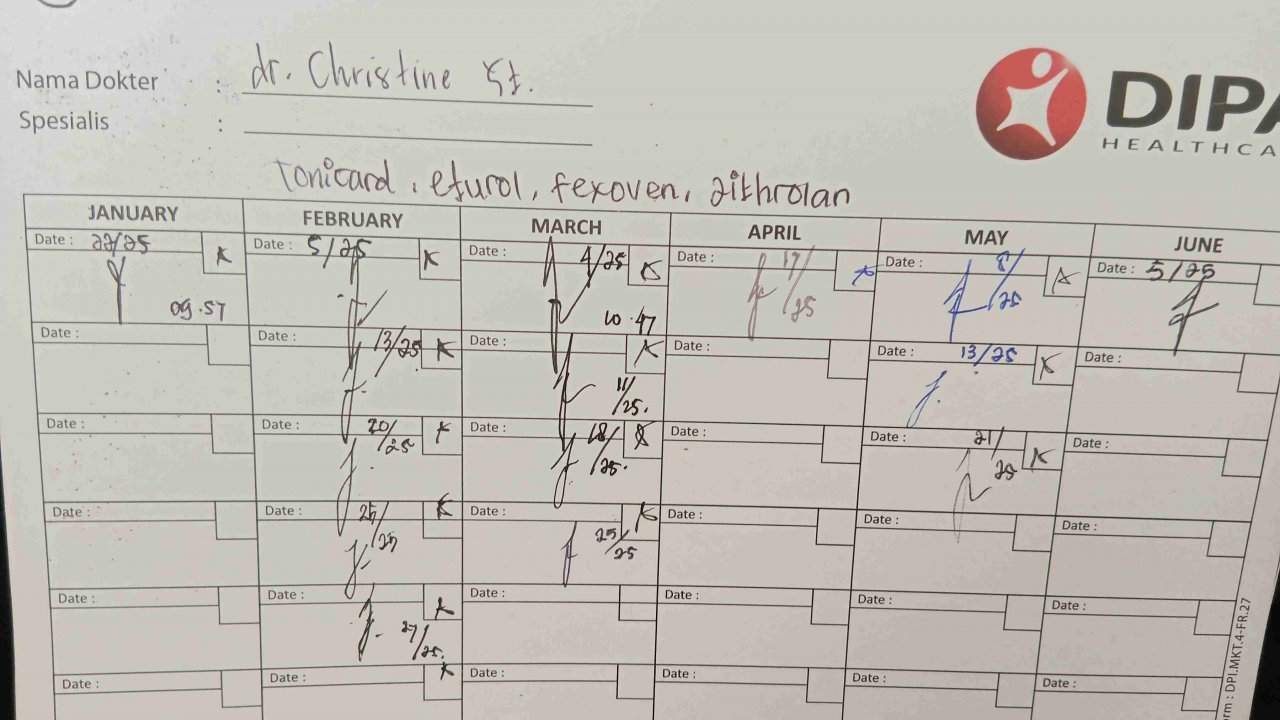 Nama Dokter : dr. Christine St.
Spesialis :
DIPA
HEALTHCA
Tonicard, efurol, fexoven, zithrolan
JANUARY FEBRUARY MARCH APRIL MAY JUNE
Date : 22/25 K Date : 5/25 K Date : 4/25 K Date : 17/25 K Date : 8/25 K Date : 5/25
09.57 10.47
Date : Date : 13/25 K Date : 11/25. K Date : Date : 13/25 K Date :
Date : Date : 20/25 K Date : 18/25. K Date : Date : 21/25 K Date :
Date : Date : 25/25 K Date : 25/25 K Date : Date : Date :
Date : Date : 27/25. K Date : Date : Date : Date :
Date : Date : K Date : Date : Date : Date :
rm : DPI.MKT.4-FR.27